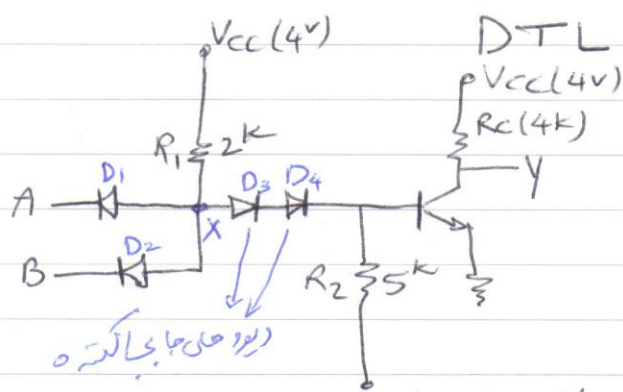 DTL
Vcc(4v)
Vcc(4v)
Rc(4k)
R1 2k
D1
D3
D4
Y
A
X
D2
B
R2 5k
دیود های جابجا کننده